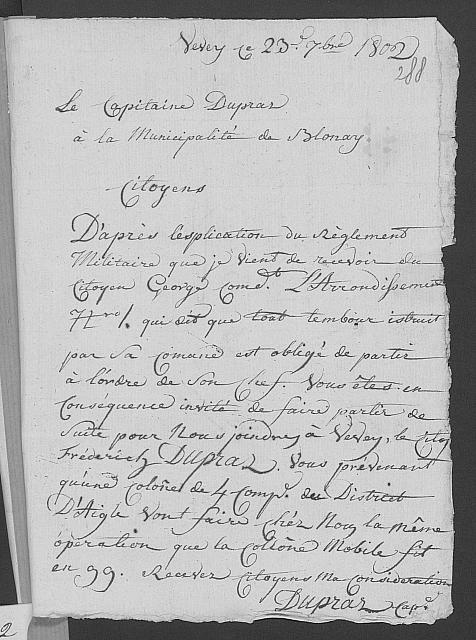 Vevey ce 23.e 7bre 1802
288
Le Capitaine Dupraz
à la Municipalité de Blonay
Citoyens
D'après lesplication du Règlement
Militaire que je vient de recevoir du
Citoyen George Comd.t L'Arrondissement
7bre 1. qui dit que tout tembour istruit
par sa comune est obligé de partir
à lordre de son chef. Vous êtes en
Conséquence invité de faire partir de
Suite pour Nous joindre, à Vevey, le Citoy
Fréderich Dupraz. Vous prévenant
qu'une colone de 4 Comp.s du District
D'Aigle vont faire chéz Nous la même
opération que la Collone Mobile fit
en 99. Recevez Citoyens ma Considération
Dupraz Cap.e
2